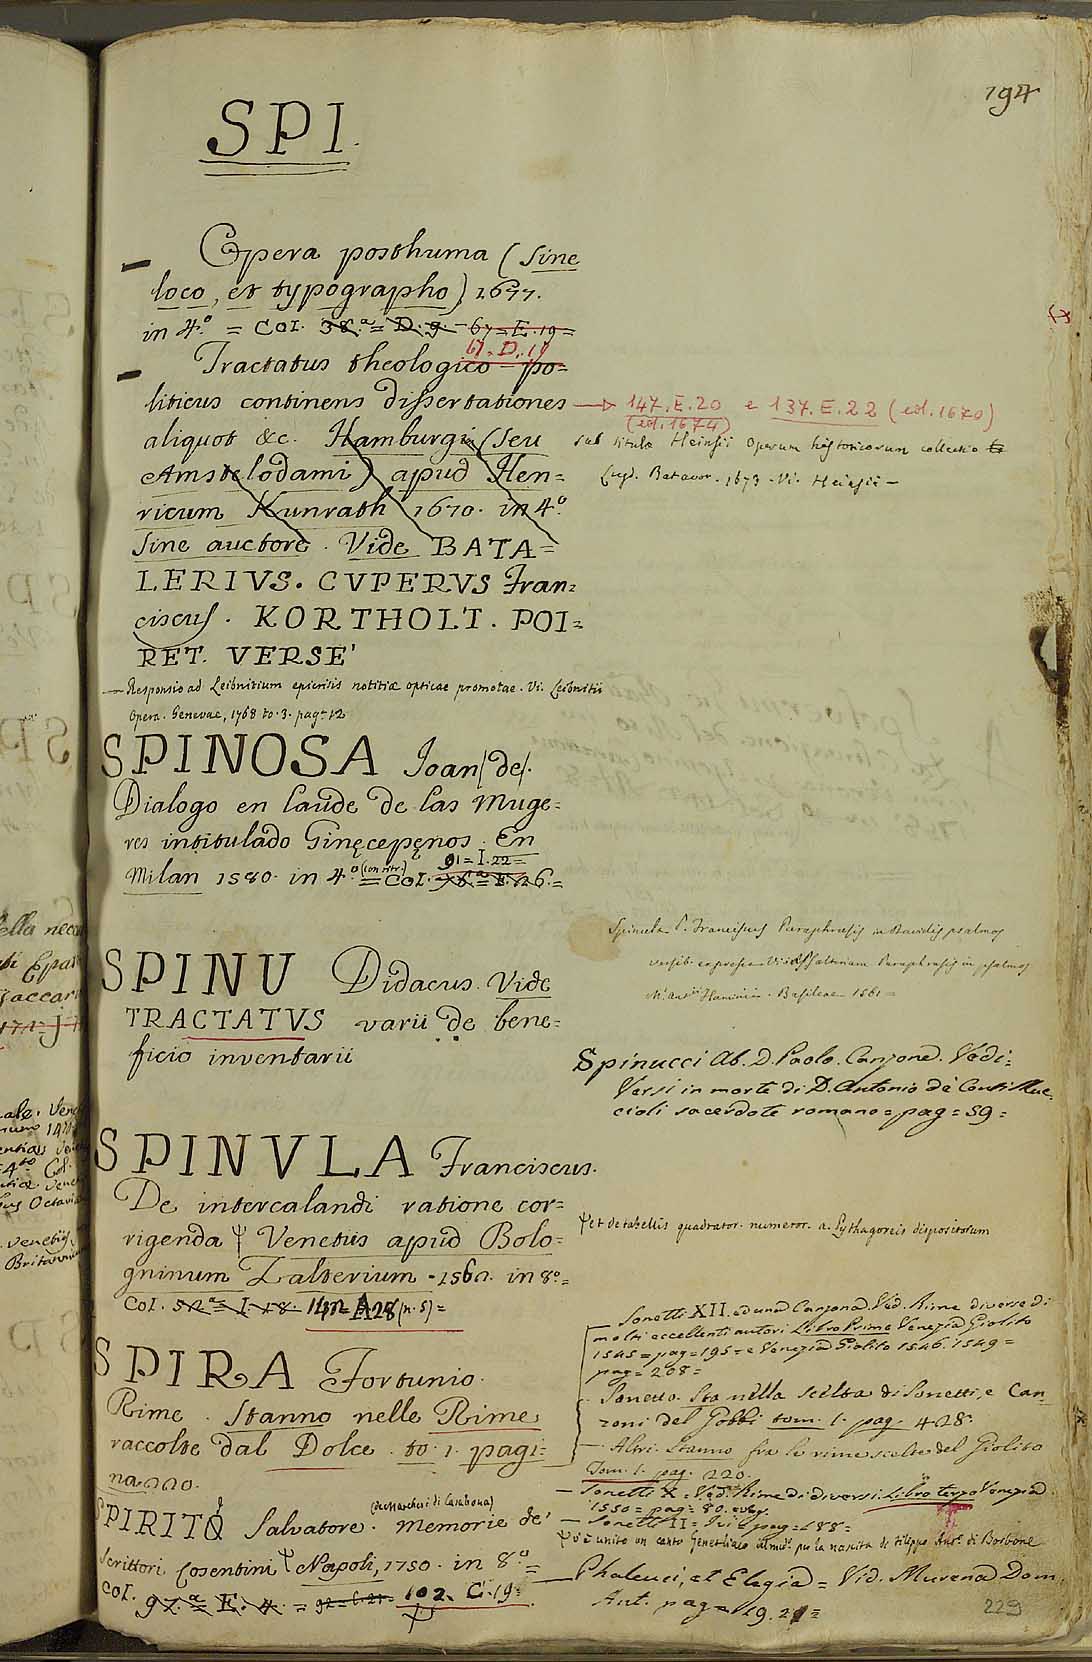 194
SPI.
Opera posthuma (Sine
loco, et typographo) 1677.
in 4.º = Col. 38.ª = D. 9. - 67 = E. 19 =
67. D. 19
Tractatus theologico-po=
liticus continens dissertationes
aliquot &c. Hamburgi (seu
Amstelodami) apud Hen=
ricum Kunrath 1670. in 4.º
Sine auctore. Vide BATA=
LERIVS. CVPERVS Fran=
ciscus. KORTHOLT. POI=
RET. VERSE'
147.E.20 e 137.E.22 (ed. 1670)
(ed. 1674)
sub titulo Heinsii Operum historicorum collectio
Lugd. Batavor. 1673. Vi. Heinsii —
— Responsio ad Leibnitium epicrisis notitiæ opticae promotae. Vi. Leibnitii
Opera. Genevae, 1768 to. 3. pag. 12
SPINOSA Joan (de).
Dialogo en laude de las Muge=
res intitulado Ginęcepęnos. En
91 = I. 22 =
Milan 1580. in 4.º (con ritr.) = Col. 98.ª = E. 26. =
SPINU Didacus. Vide
TRACTATVS varii de bene=
ficio inventarii
Spinula P. Franciscus Paraphrasis in Davidis psalmos
versib. expressa Vi. Psalterium Paraphrasis in psalmos
M. Antii Flaminii. Basileae 1561 =
Spinucci Ab. D. Paolo. Canzone. Vedi=
Versi in morte di D. Antonio de' Conti Muc=
cioli sacerdote romano = pag = 59 =
SPINVLA Franciscus.
De intercalandi ratione cor=
rigenda Ψ Venetiis apud Bolo=
gninum Zalterium. 1562. in 8º =
Col. 52ª = I. 18. A28 (n. 5) =
Ψ et de tabellis quadrator. numeror. a Pythagoreis dispositorum
SPIRA Fortunio.
Rime. Stanno nelle Rime
raccolte dal Dolce. to. 1. pagi=
na 220.
— Sonetti XII. ed una Canzona. Ved. Rime diverse di
molti eccellenti autori Libro Primo Venezia Giolito
1545 = pag = 195 = e Venezia Giolito 1546. 1549 =
pag = 208 =
— Sonetto. Sta nella scelta di Sonetti, e Can=
zoni del Gobbi tom. 1. pag. 428.
— Altri. Stanno fra le rime scelte del Giolito
Tom. 1. pag. 220.
— Sonetti X = Ved. Rime di diversi. Libro terzo Venezia
1550 = pag = 80.
— Sonetti II = Ivi = pag = 188 =
SPIRITO Salvatore. (de Marchesi di Casabona) Memorie de'
Scrittori Cosentini Ψ Napoli, 1750. in 8.º =
Col. 97.ª = E. 4. = 92 = E. 21 = 102. C. 19 =
Ψ vi è unito un canto Genetliaco per la nascita di Filippo Ant.º di Borbone
— Phaleuci, et Elegia = Vid. Murena Dom.
Ant. pag = 19. 21 =
229